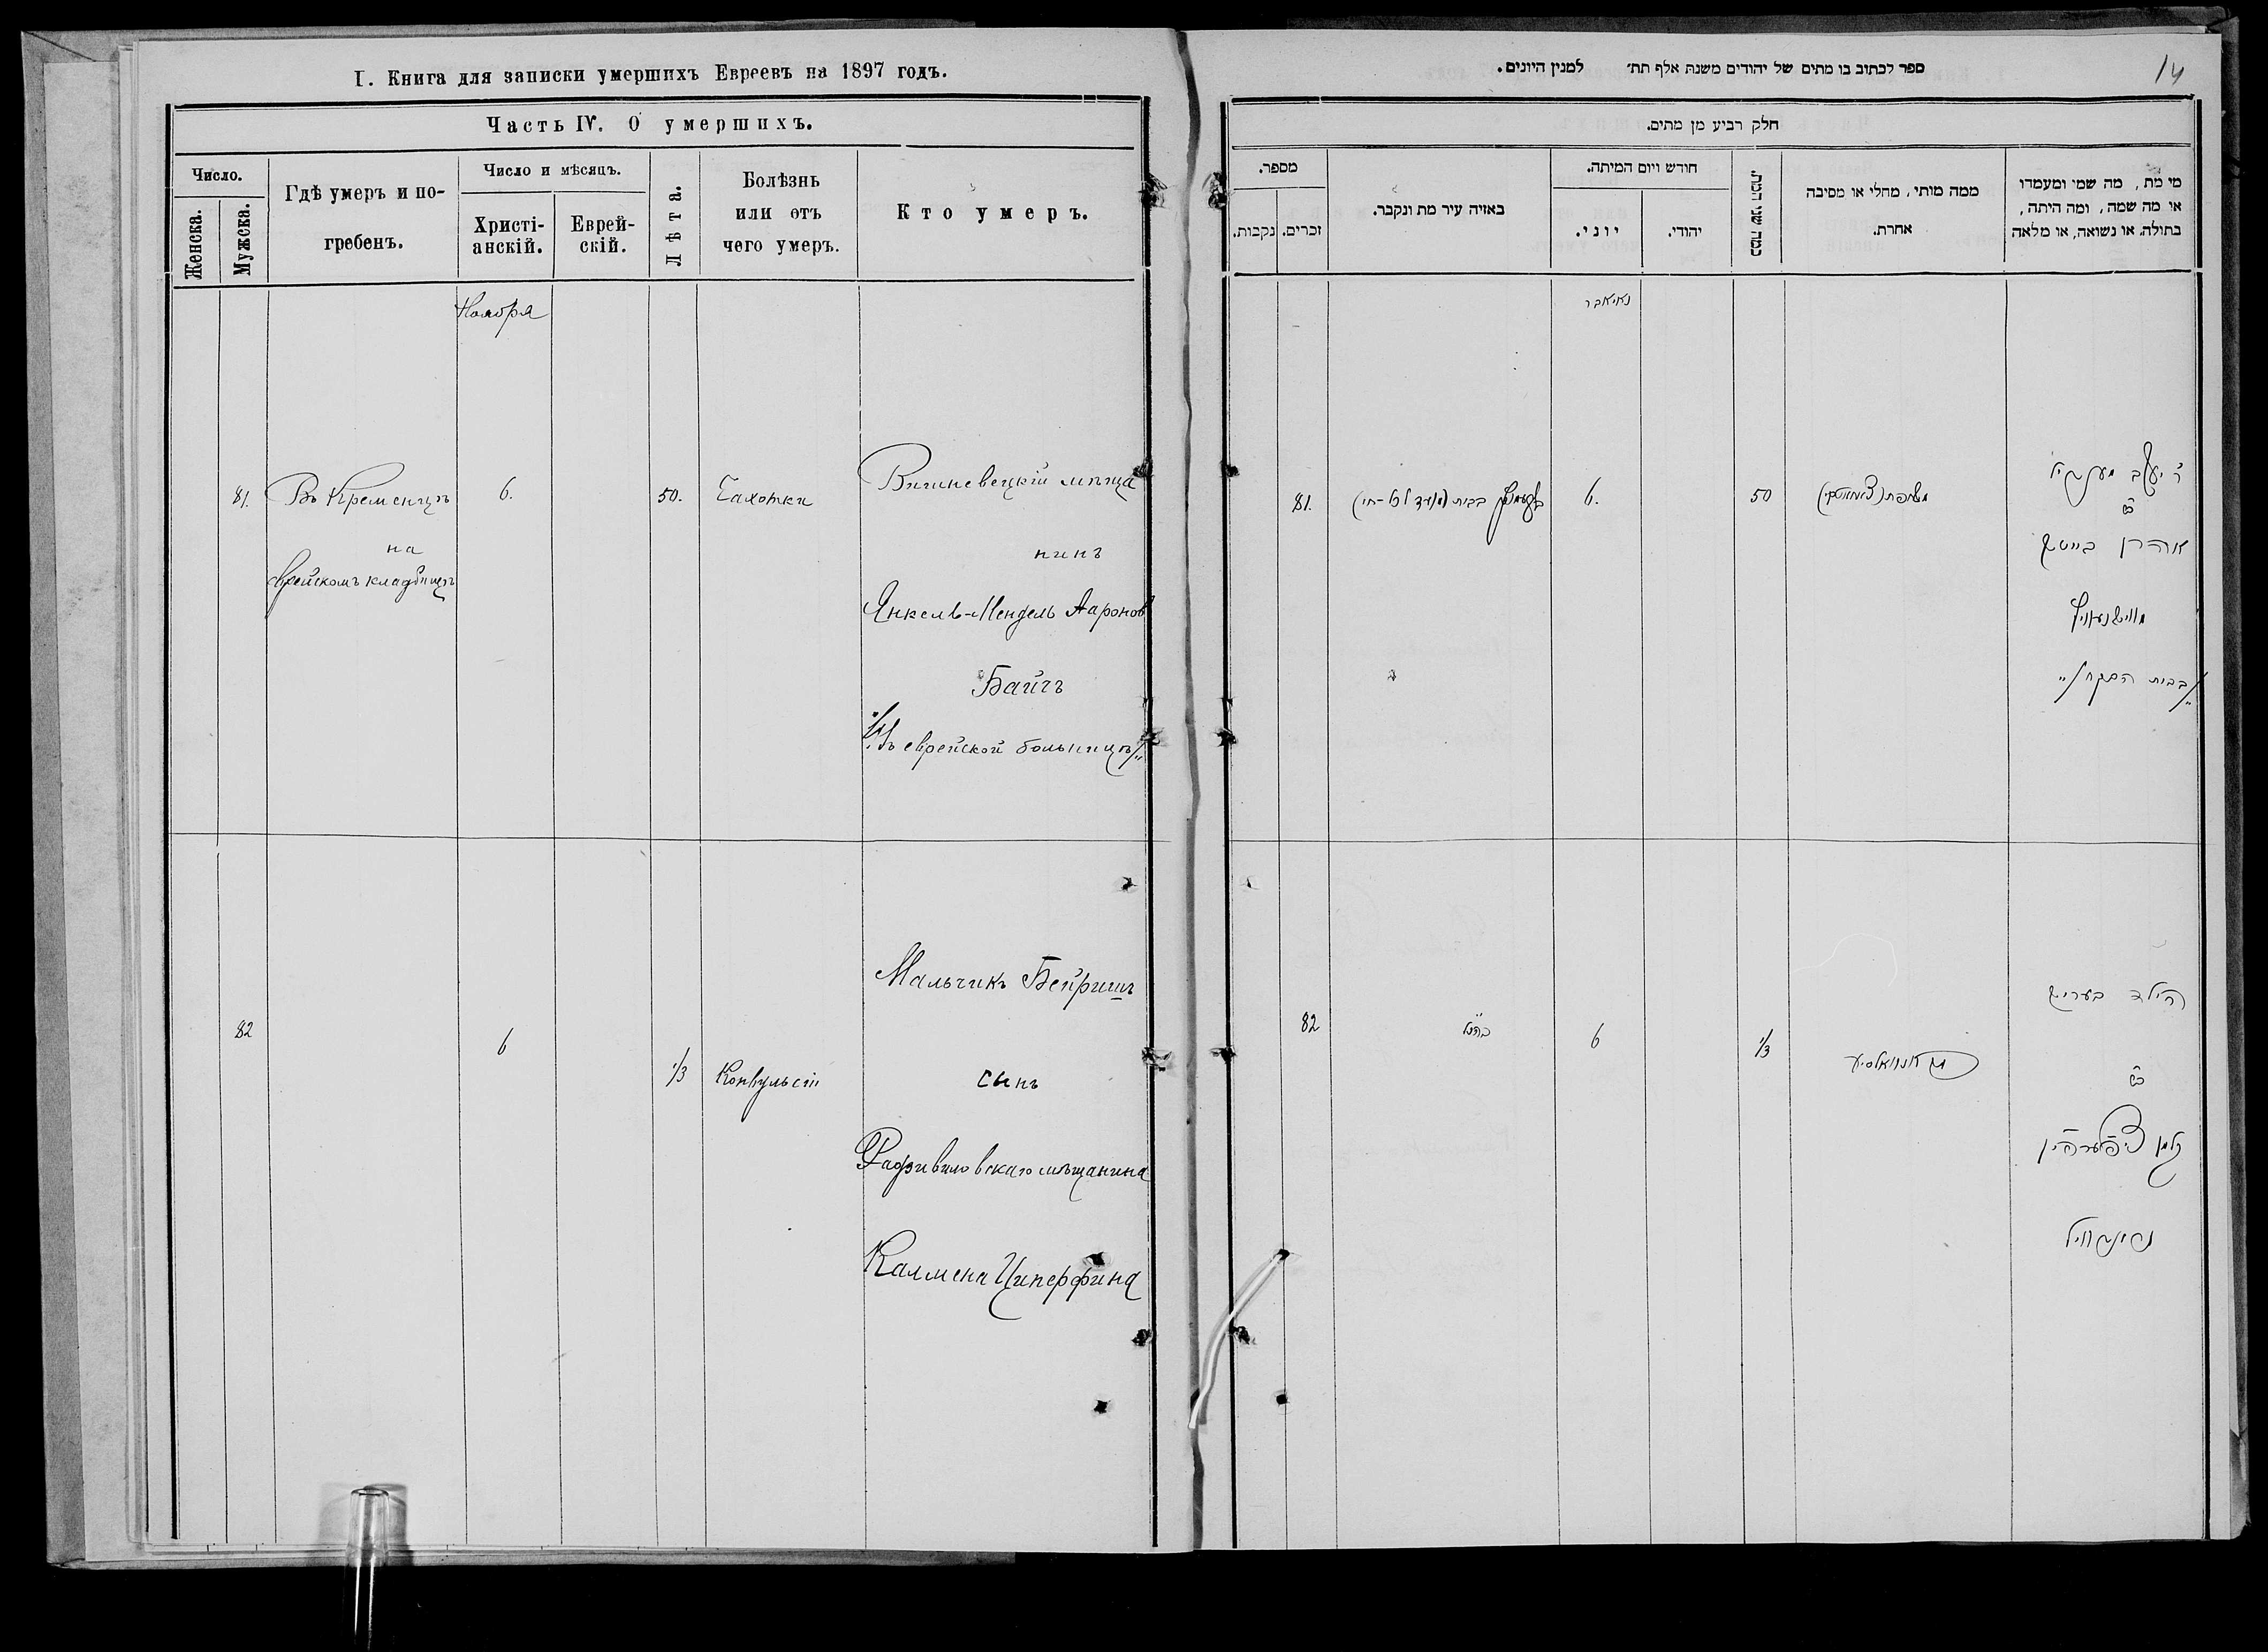 I. Книга для записки умершихъ Евреевъ на 1897 годъ.
Часть IV. О умершихъ.
Число.
Женска.
Мужска.
Гдѣ умеръ и по-
гребенъ.
Число и мѣсяцъ.
Христі-
анскій.
Еврей-
скій.
Лѣта.
Болѣзнь
или отъ
чего умеръ.
Кто умеръ.
Ноября
81.
Въ Кременцѣ
на
еврейскомъ кладбищѣ
6.
50.
Чахотки
Вишневецкій мѣща
нинъ
Янкель-Мендель Ааронов
Байчъ
/Въ еврейской больницѣ/
82
6
1/3
Конвульсіи
Мальчикъ Бейришъ
сынъ
Радзивиловскаго мѣщанина
Калмена Циперфина
ספר לכתוב בו מתים של יהודים משנת אלף תת׳ למנין היונים.
14
חלק רביע מן מתים.
מספר.
נקבות.
זכרים.
באיזה עיר מת ונקבר.
חודש ויום המיתה.
יוני.
יהודי.
כמה שני המת.
ממה מותי, מחלי או מסיבה
אחרת.
מי מת, מה שמי ומעמדו
או מה שמה, ומה היתה,
בתולה, או נשואה, או מלאה
נאיאבר
81.
6.
50
ר׳ יעקב מענדיל
אהרן בייטש
82
כהנ״ל
6
1/3
קאנוואלסיע
הילד בעריש
קלמן ציפערפין